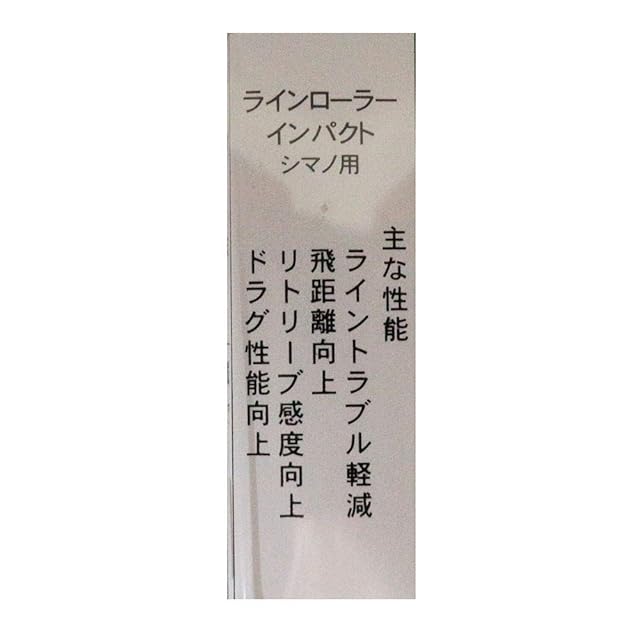 ラインローラー
インパクト
シマノ用
主な性能
ライントラブル軽減
飛距離向上
リトリーブ感度向上
ドラグ性能向上